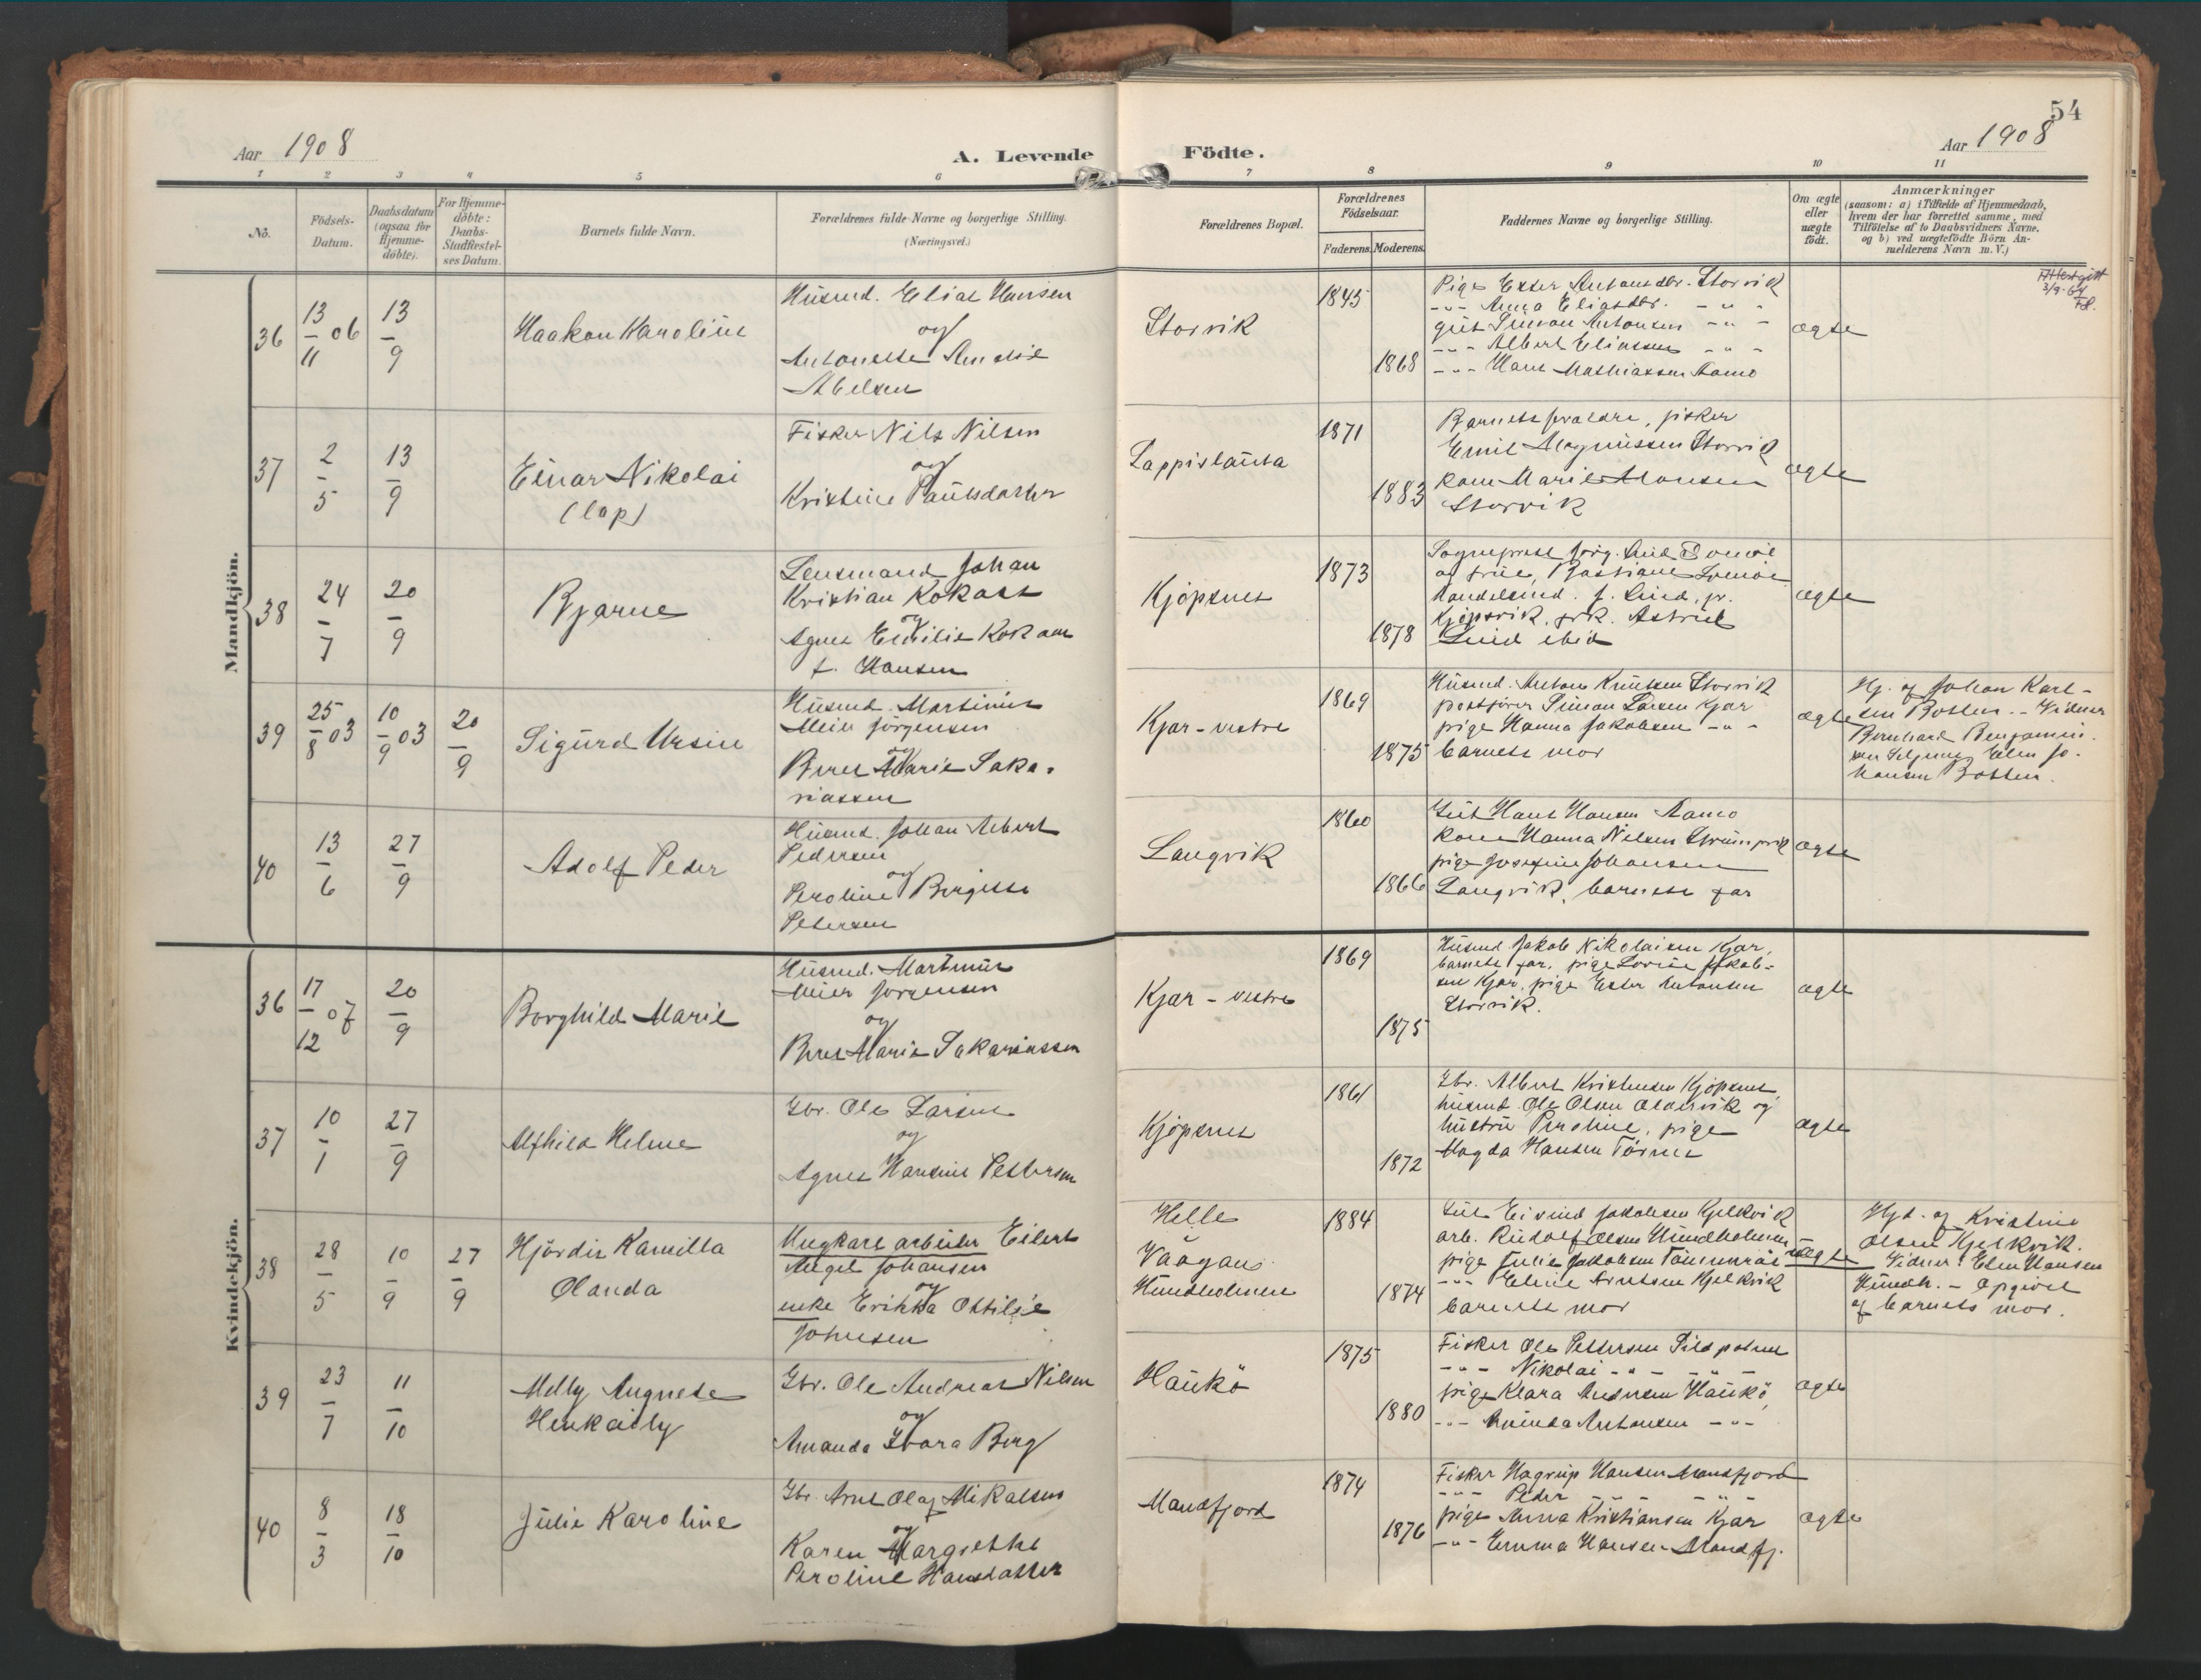 54
Aar 1908
A. Levende
Födte.
Aar 1908
1 2 3 4 5 6 7 8 9 10 11
Nö.
Födsels-
Datum.
Daabsdatum
(ogsaa for
Hjemme-
döbte).
For Hjemme-
döbte:
Daabs-
Stadfæstel-
ses Datum.
Barnets fulde Navn.
Forældrenes fulde Navne og borgerlige Stilling.
(Næringsvei.)
Forældrenes Bopæl.
Forældrenes
Födselsaar.
Faderens. Moderens.
Faddernes Navne og borgerlige Stilling.
Om ægte
eller
uægte
födt.
Anmærkninger
(saasom: a) i Tilfælde af Hjemmedaab,
hvem der har forrettet samme, med
Tilföielse af to Daabsvidners Navne,
og b) ved uægtefödte Börn An-
melderens Navn m. V.)
Mandkjön.
36
13/11 06
13/9
Haakon Karolius
Husmd. Elias Hansen
og
Antonette Amalie
Abelsen
Storvik
1845
1868
Pige Ester Antonsdtr. Storvik
-"- Anna Eliasdtr. - " -
gut Simon Antonsen - " -
-"- Albert Eliassen - " -
-"- Hans Mathiassen Aamo
ægte
Attest gitt
3/9-64
37
2/5
13/9
Einar Nikolai
(lap)
Fisker Nils Nilsen
og
Kristine Paulsdatter
Lappislauta
1871
1883
Barnets foraldre, fisker
Emil Magnussen Storvik
kone Marie Monsen
Storvik
ægte
38
24/7
20/9
Bjarne
Lensmand Johan
Kristian Kokaas
og
Agnes Emilie Kokaas
f. Hansen
Kjöpsnes
1873
1878
Sogneprest Jörg.
og frue, Bastiane
Handelsmd. J. Lind, jr.
Kjöpsvik, frk. Astrid
Lind ibid
ægte
39
25/8 03
10/9 03
20/9
Sigurd Ursin
Husmd. Martinus
Meier Jörgensen
og
Beret Marie Saka-
riassen
Kjar-vestre
1869
1875
Husmd. Anton Knutsen Storvik
postförer Simon Larsen Kjar
pige Hanna Jakobsen - " -
barnets mor
ægte
Hj. af Johan Karl-
sen Botten. - Vidner
Bernhard Benjamin-
sen Elen Jo-
hansen Botten.
40
13/6
27/9
Adolf Peder
Husmd. Johan Albert
Pedersen
og
Peroline Bergitte
Petersen
Langvik
1860
1866
Gut Hans Hansen Aamo
kone Hanna Nilsen
pige Josefine Johansen
Langvik, barnets far
ægte
Kvindekjön.
36
17/12 07
20/9
Borghild Marie
Husmd. Martinus
Meier Jörgensen
og
Beret Marie Sakariassen
Kjar-vestre
1869
1875
Husmd. Jakob Nikolaisen Kjar,
barnets far, pige Lovise Jakob-
sen Kjar, pige Ester Antonsen
Storvik.
ægte
37
10/1
27/9
Alfhild Helene
Gbr. Ole Larsen
og
Agnes Hansine Pettersen
Kjöpsnes
1861
1872
Gbr. Albert Kristensen Kjöpsnes
husmd. Ole Olsen Oldervik og
hustru Peroline, pige
Magda Hansen
ægte
38
28/5
10/9
27/9
Hjördis Kamilla
Olanda
Ungkarl arbeider Eilert
Angel Johansen
og
enke Erikka Ottilie
Johnsen
Helle
Vaagan
Hundholmen
1884
1874
Gut Eivind Jakobsen Kjelkvik
arb. Rudolf Olsen Hundholmen
pige Julie Jakobsen
-"- Eline Knutsen Kjelkvik
barnets mor
uægte
Hjd. af Kristine
Olsen Kjelkvik.
Vidner: Elen Hansen
Hundh. - Opgivet
af barnets mor.
39
23/7
11/10
Melly Augneta
Henkailly
Gbr. Ole Andreas Nilsen
og
Amanda Thora Berg
Haukö
1875
1880
Fisker Ole Pettersen Sildpolnes
-"- Nikolai - " -
pige Klara Andersen Haukö,
-"- Antonsen - " -
ægte
40
8/3
18/10
Julie Karoline
Gbr. Arnt Olaf Mikalsen
og
Karen Margrethe
Peroline Hansdatter
Mandfjord
1874
1876
Fisker Hagrup Hansen Mandfjord
-"- Peder - " -
pige Anna Kristiansen Kjar
-"- Emma Hansen Mandfj.
ægte